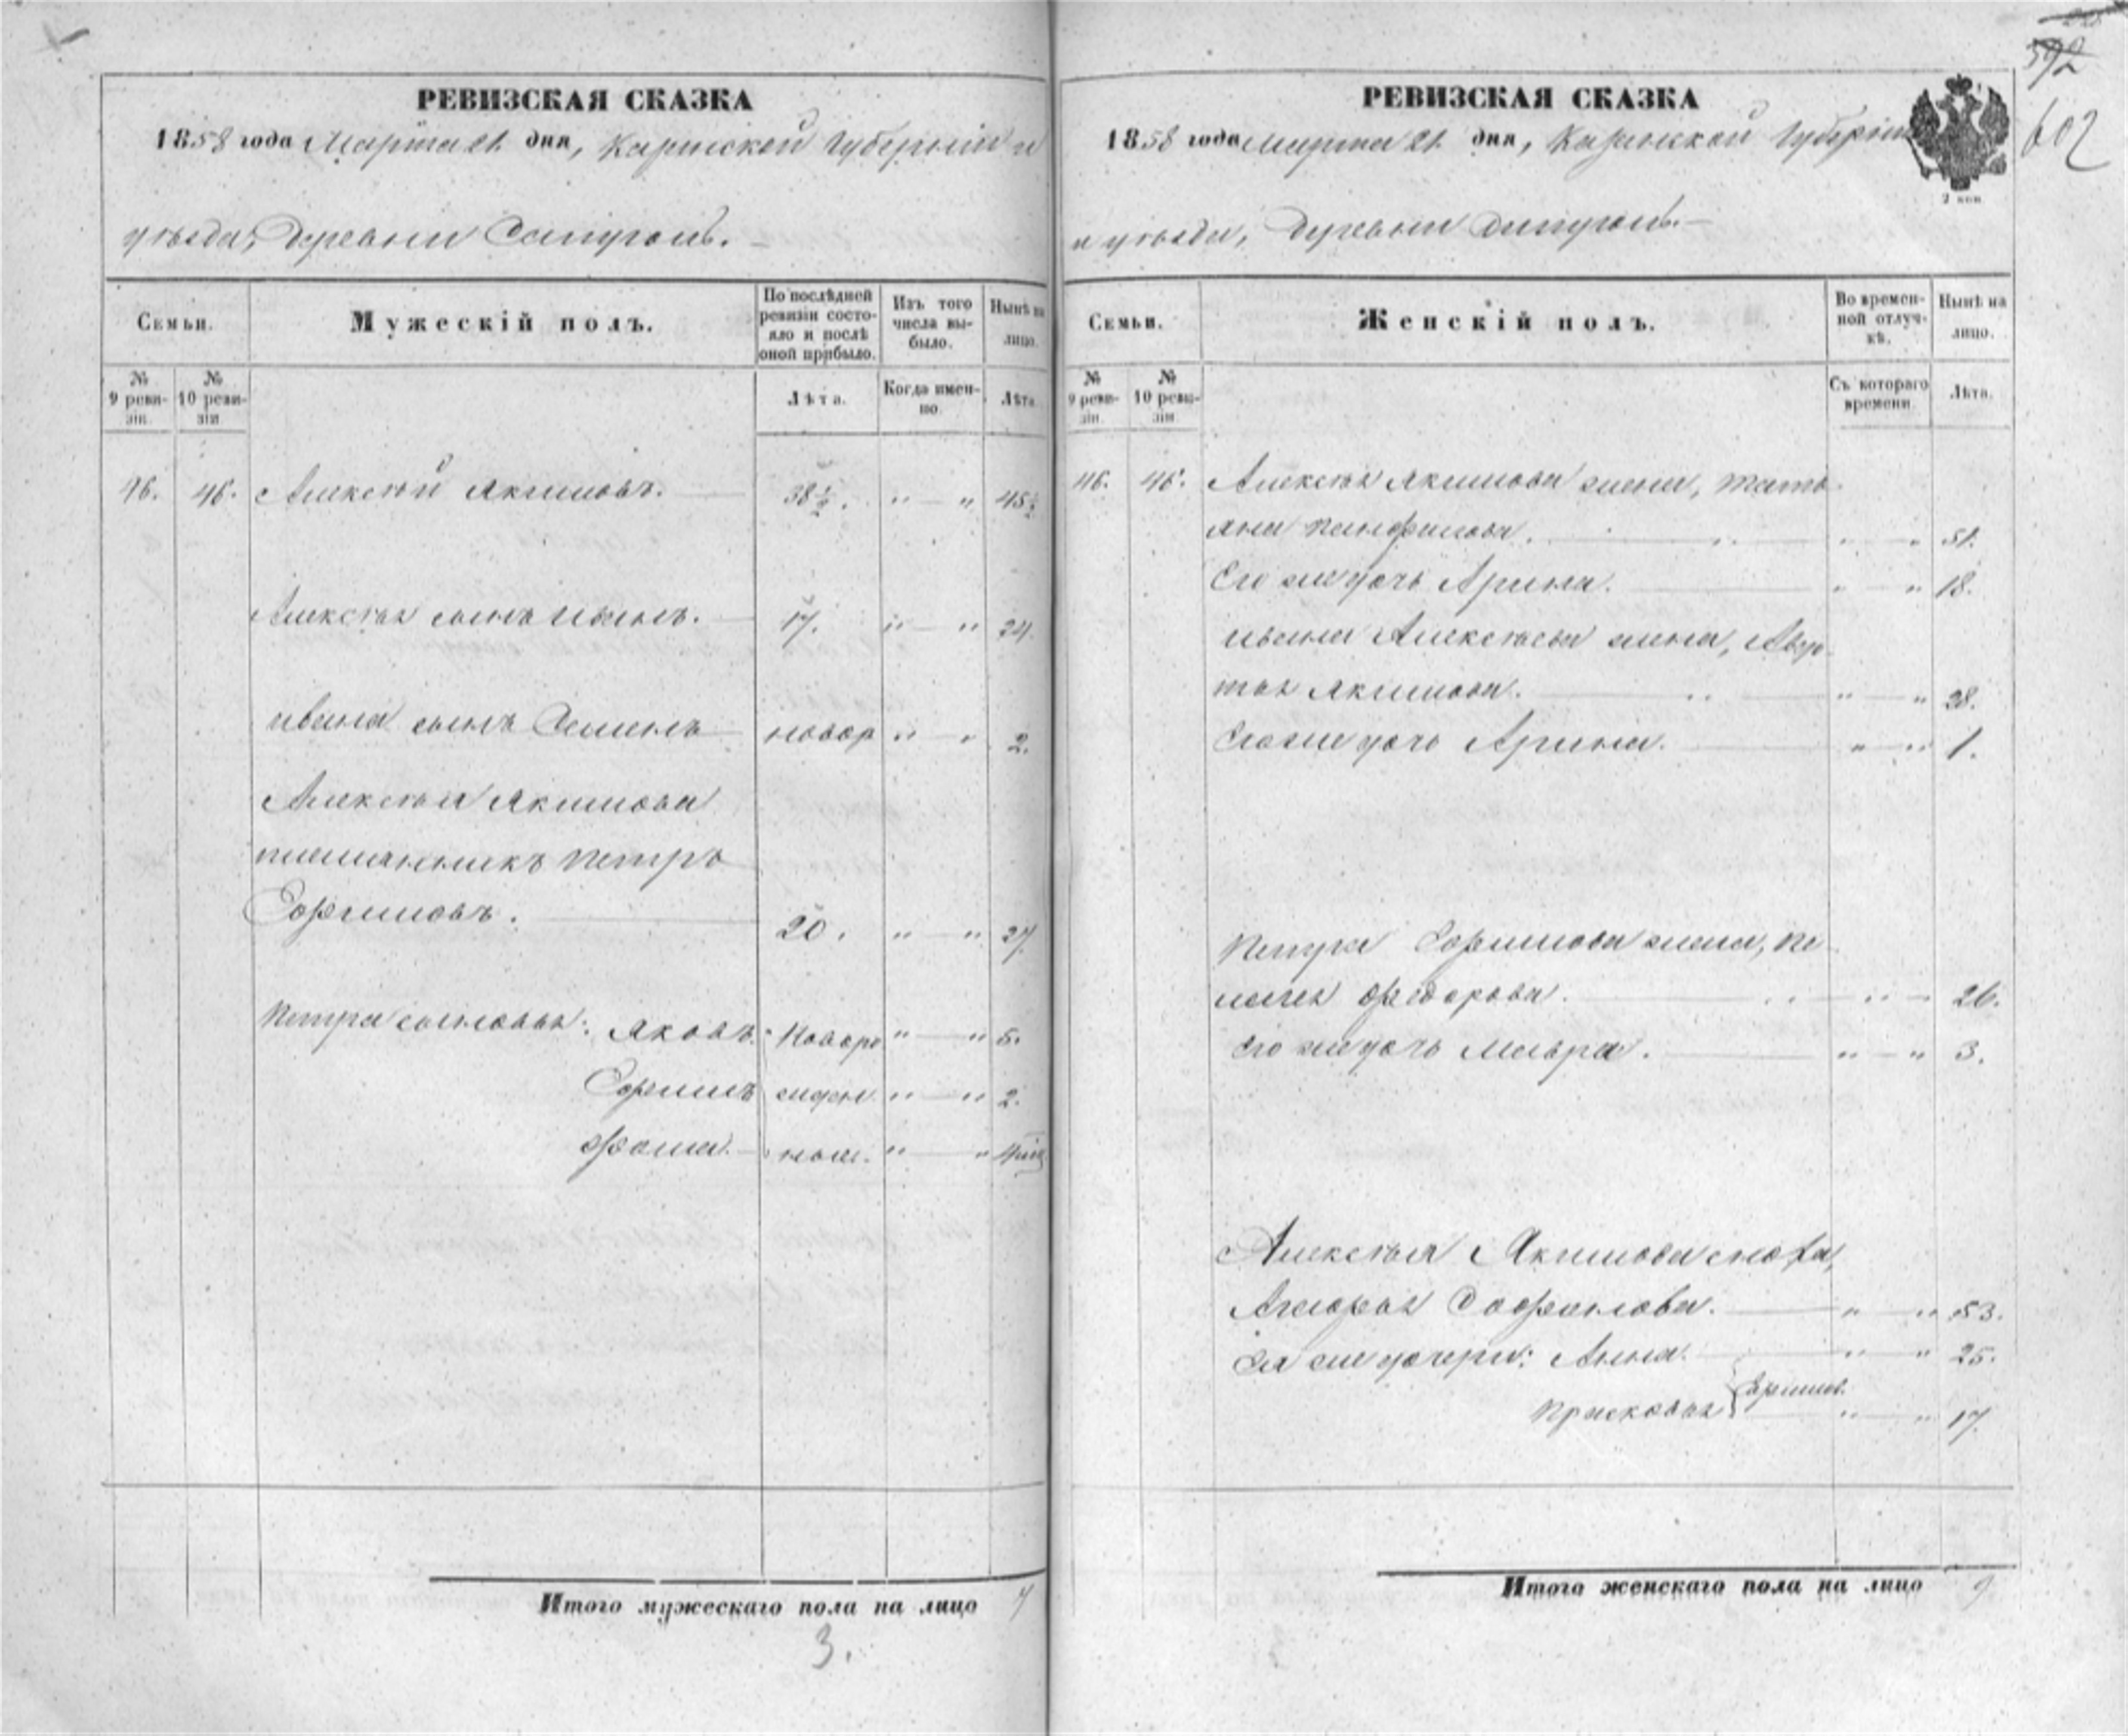 592
602
РЕВИЗСКАЯ СКАЗКА
1858 года Марта 21 дня, Казанской Губерніи и
уѣзда, Деревни
Семьи.
Мужескій полъ.
По послѣдней ревизіи состояло и послѣ оной прибыло.
Изъ того числа выбыло.
Нынѣ на лицо.
№ 9 ревизіи.
№ 10 ревизіи
Лѣта.
Когда именно.
Лѣта.
46. 46. Алексѣй Якимовъ. 38½. " — " 45½
Алексѣя сынъ Иванъ. 17. " — " 24.
Ивана сынъ Семенъ новор " — " 2.
Алексѣя Якимова
племянникъ Петръ
Ефимовъ. 20. " — " 27.
Петра сыновья: Яковъ. Новоро " — " 5.
Ефимъ жден " — " 2.
Фома. ные. " — "
Итого мужескаго пола на лицо 7
3.
РЕВИЗСКАЯ СКАЗКА
1858 года Марта 21 дня, Казанской Губерніи
2 коп
и уѣзда, Деревни
Семьи.
Женскій полъ.
Во временной отлучкѣ.
Нынѣ на лицо.
№ 9 ревизіи.
№ 10 ревизіи
Съ котораго времени.
Лѣта.
46. 46. Алексѣя Якимова жена, Тать
яна Панфилова. " — " 51.
Его же дочь Арина. " — " 18.
Ивана Алексѣева жена, Авдо
тья Якимова. " — " 28.
Его же дочь Арина. " — " 1.
Петра Ефимова жена, Пе
лагея Федорова. " — 26.
Его же дочь Мавра. " — " 3.
Алексѣя Якимова сноха,
Сафонова. " — " 53.
Ея же дочери: Анна. " — " 25.
Прасковья } Ефимов. " — " 17.
Итого женскаго пола на лицо 9